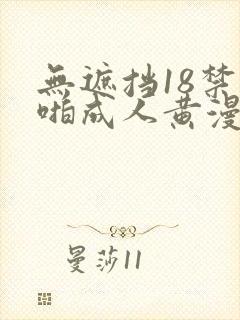 無遮挡18禁
啪成人黄漫
曼莎11